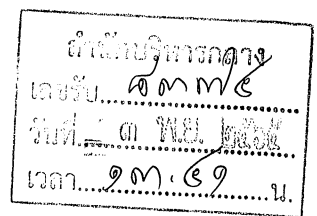 สำนักบริหารกลาง
เลขรับ
วันที่ - ๓ พ.ย. ๒๕๖๕
เวลา ๑๓.๔๑ น.